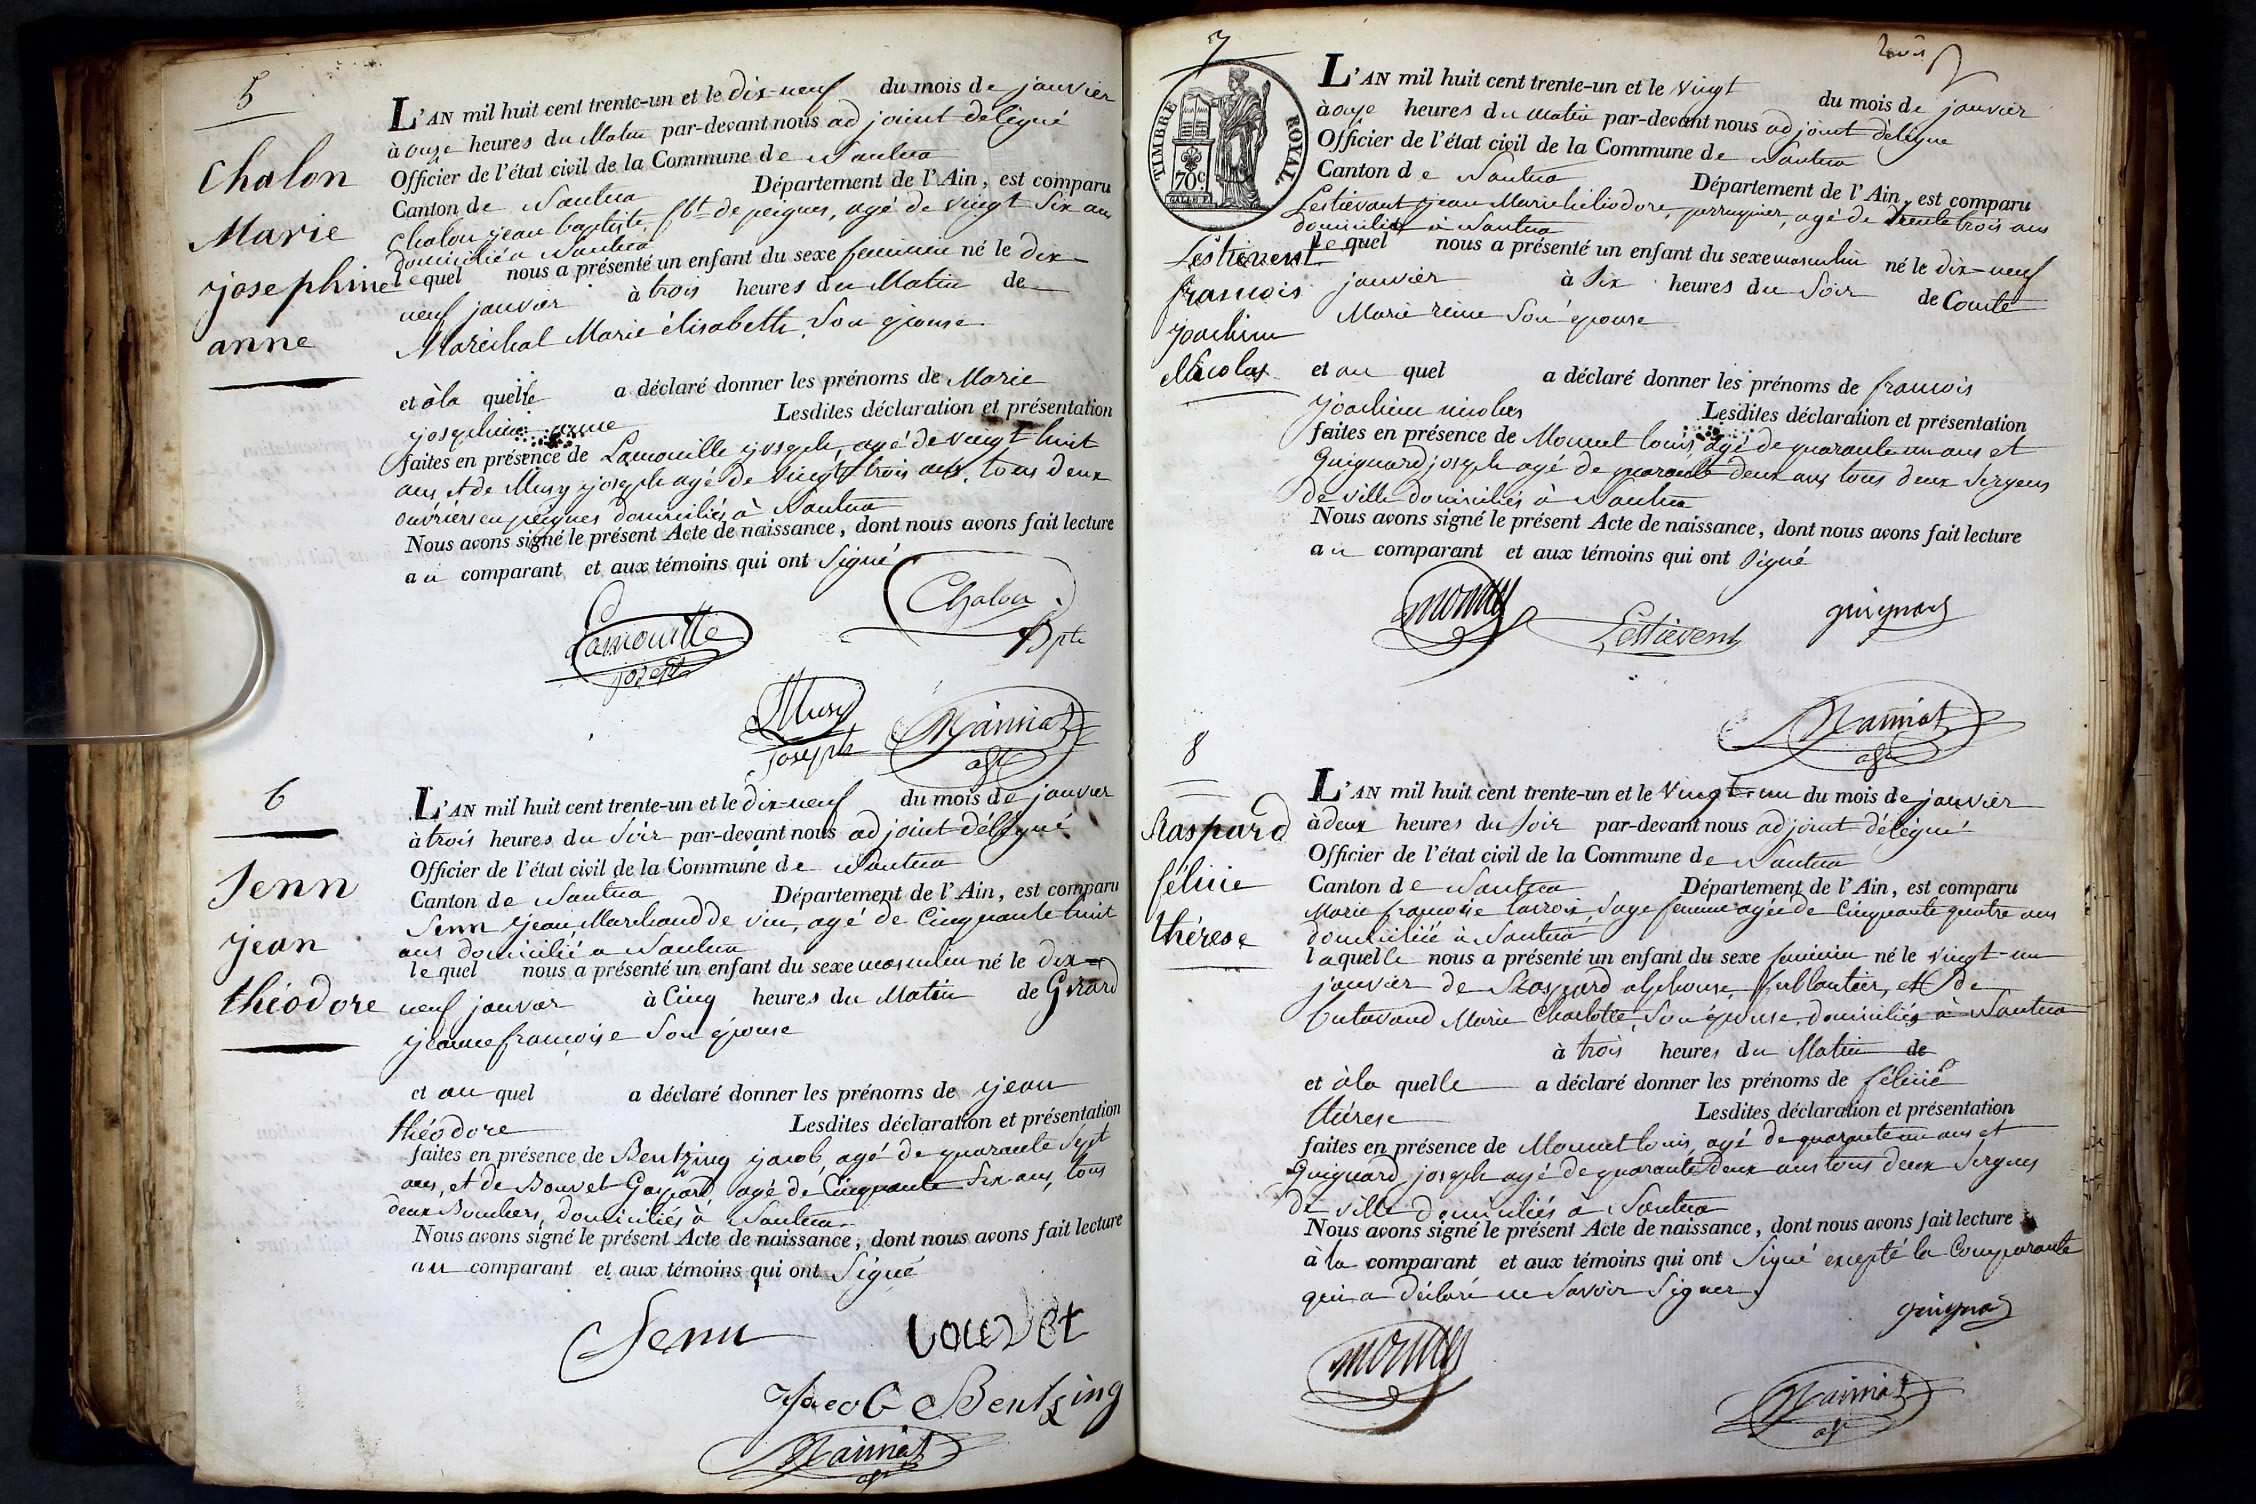 5
Chalon
Marie
josephine
anne
L'AN mil huit cent trente-un et le dix-neuf du mois de janvier
à onze heures du Matin par-devant nous adjoint délégué
Officier de l'état civil de la Commune de Nantua
Canton de Nantua Département de l'Ain, est comparu
Chalon jean baptiste, fbt de peignes, agé de vingt six ans
domicilié a Nantua
lequel nous a présenté un enfant du sexe feminin né le dix
neuf janvier à trois heures du Matin de
Maréchal Marie élisabeth, son épouse
et à la quelle a déclaré donner les prénoms de Marie
josephine anne Lesdites déclaration et présentation
faites en présence de Lamouille joseph, agé de vingt huit
ans, et de Musy joseph agé de vingt trois ans, tous deux
ouvriers en peignes domiciliés à Nantua
Nous avons signé le présent Acte de naissance, dont nous avons fait lecture
au comparant et aux témoins qui ont signé
Chalon
Bpte
Lamouille
joseph
Musy
Joseph
6
Senn
jean
théodore
L'AN mil huit cent trente-un et le dix-neuf du mois de janvier
à trois heures du soir par-devant nous adjoint délégué
Officier de l'état civil de la Commune de Nantua
Canton de Nantua Département de l'Ain, est comparu
Senn jean, Marchand de vin, agé de Cinquante huit
ans domicilié a Nantua
lequel nous a présenté un enfant du sexe masculin né le dix
neuf janvier à Cinq heures du Matin de Girard
jeanne françoise son épouse
et au quel a déclaré donner les prénoms de jean
théodore Lesdites déclaration et présentation
faites en présence de Bentzing jacob, agé de quarante sept
ans, et de Bouvet Gaspard, agé de Cinquante six ans, tous
deux Bouchers, domiciliés à Nantua
Nous avons signé le présent Acte de naissance, dont nous avons fait lecture
au comparant et aux témoins qui ont signé
Senn
bouvet
Jacob Bentzing
7
TIMBRE ROYAL
70c
Lestievent
françois
joachim
Nicolas
L'AN mil huit cent trente-un et le vingt du mois de janvier
à onze heures du matin par-devant nous adjoint délégué
Officier de l'état civil de la Commune de Nantua
Canton de Nantua Département de l'Ain, est comparu
Lestievant jean Marie héliodore, perruquier, agé de trente trois ans
domicilié à Nantua
lequel nous a présenté un enfant du sexe masculin né le dix-neuf
janvier à six heures du soir de Comte
Marie reine son épouse
et au quel a déclaré donner les prénoms de françois
joachim nicolas Lesdites déclaration et présentation
faites en présence de Monnet louis, agé de quarante un ans et
Guignard joseph agé de quarante deux ans tous deux sergens
de ville domiciliés à Nantua
Nous avons signé le présent Acte de naissance, dont nous avons fait lecture
au comparant et aux témoins qui ont signé
Lestievent
guignard
8
Raspard
félicie
thérese
L'AN mil huit cent trente-un et le vingt-un du mois de janvier
à deux heures du soir par-devant nous adjoint délégué
Officier de l'état civil de la Commune de Nantua
Canton de Nantua Département de l'Ain, est comparu
Marie françoise lacroix, sage femme agée de cinquante quatre ans
domiciliée à Nantua
laquelle nous a présenté un enfant du sexe feminin né le vingt-un
janvier de Raspard alphonse, ferblantier, et de
Marie Charlotte, son épouse, domiciliés à Nantua
à trois heures du Matin de
et à la quelle a déclaré donner les prénoms de félicie
thérese Lesdites déclaration et présentation
faites en présence de Monnet louis, agé de quarante un ans et
Guignard joseph agé de quarante deux ans tous deux sergens
de ville domiciliés a Nantua
Nous avons signé le présent Acte de naissance, dont nous avons fait lecture
à la comparant et aux témoins qui ont signé excepté la Comparante
qui a déclaré ne savoir signer
guignard